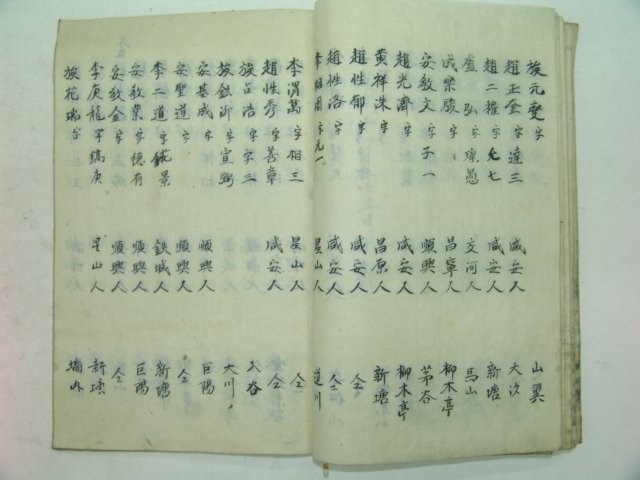 族元燮 字 山翼
趙正奎 字 達三 咸安人 大汝
趙二權 字 允七 咸安人 新塘
盧 弘 字 璨愚 交河人 馬山
成樂駿 字 昌寧人 柳木亭
安敎文 字 子一 順興人 茅谷
趙光濟 字 咸安人 柳木亭
黄祥洙 字 昌原人 新塘
趙性郁 字 咸安人 仝
趙性洛 字 咸安人 仝
李相國 字 元一 星山人 道川
李渭萬 字 相三 星山人 仝
趙性秀 字 善章 咸安人 仝
族占浩 字 入谷
族鉉沂 字 宣弼 大川
安基成 字 順興人 巨陽
安聖道 字 順興人 仝
李二道 字 景 鉄城人 新塘
安敎業 字 德有 順興人 巨陽
安敎金 字 順興人 仝
李庚龍 字 庚 星山人 新塘
族花瑞 字 外